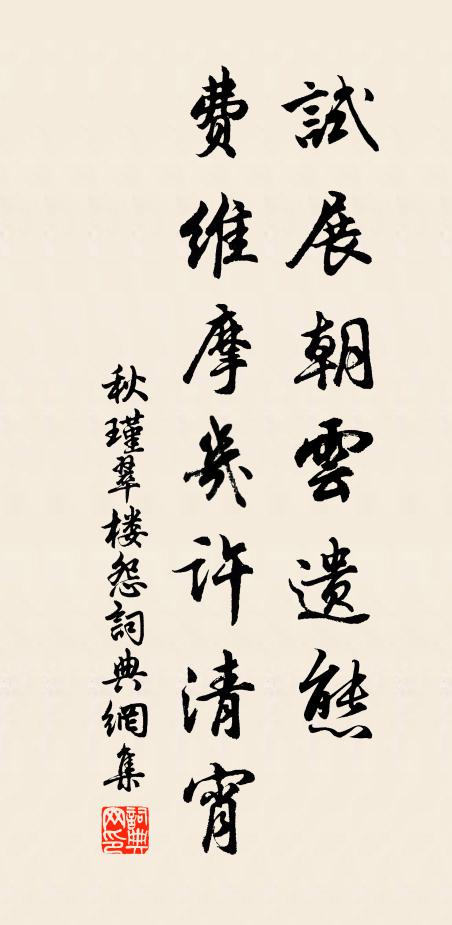 試展朝雲遺態
費維摩幾許清宵
秋瑾翠楼怨詞典網集
詞典网印